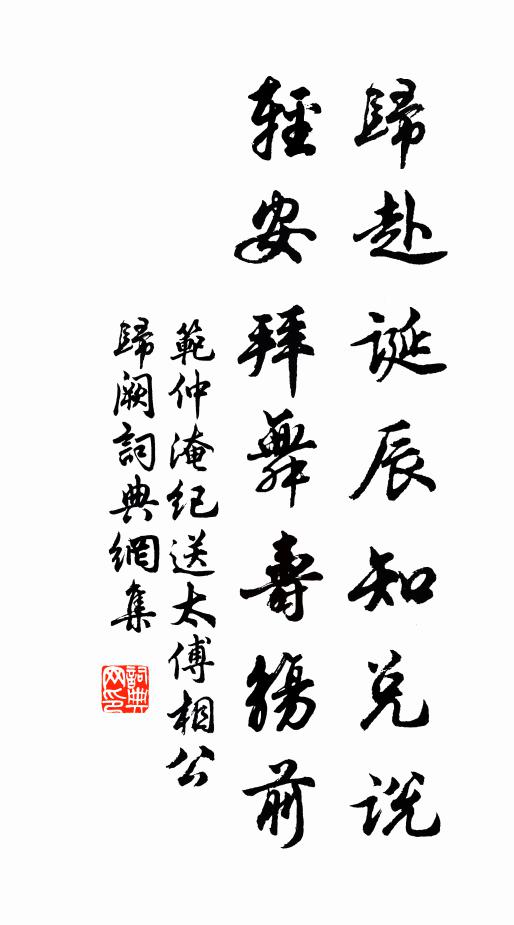 歸赴誕辰知兌說
輕安拜舞壽觴前
範仲淹紀送太傅相公
歸闕詞典網集
詞典
网印